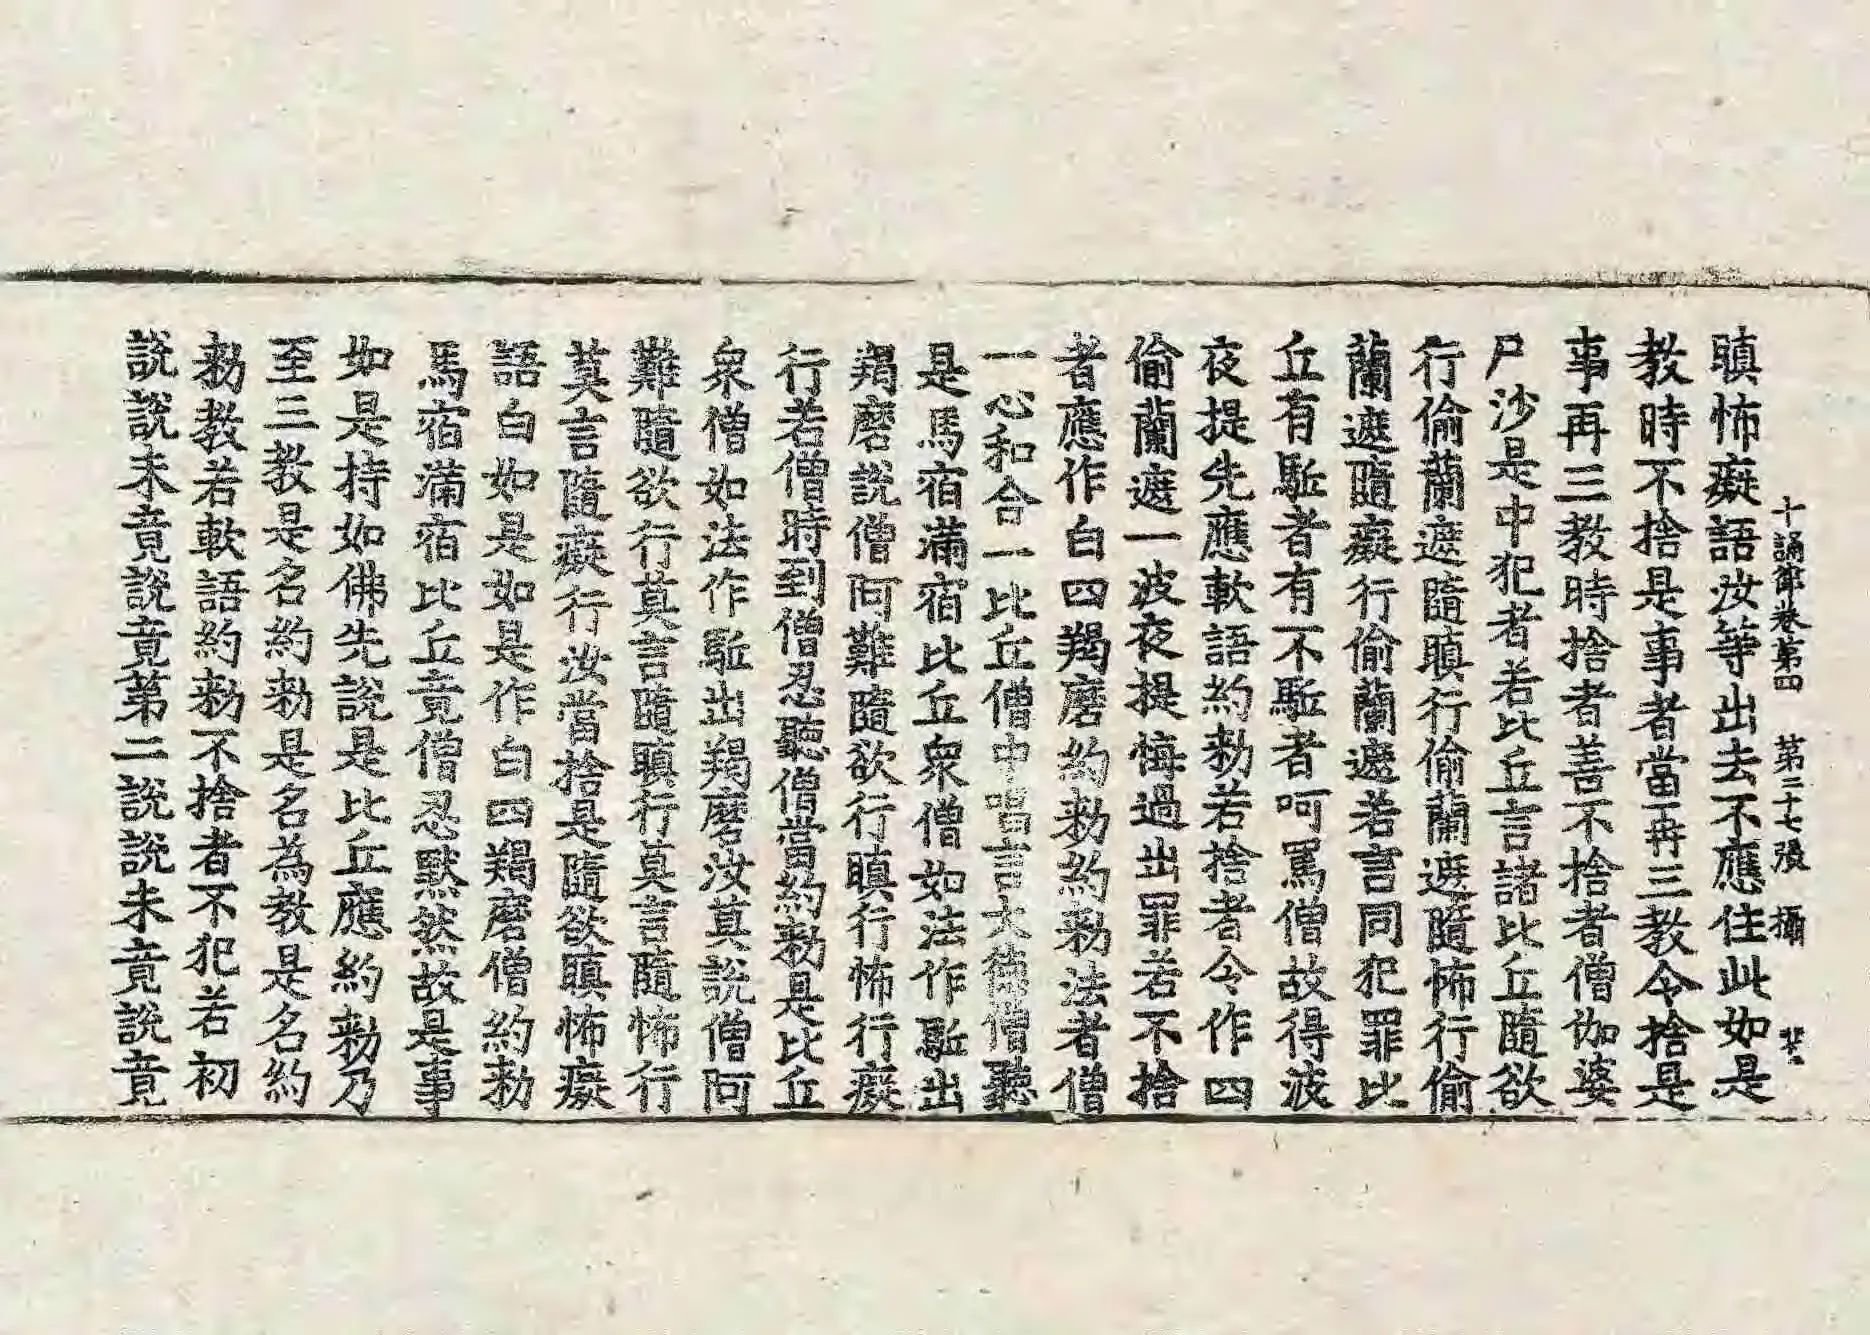 十誦律卷第四　第二十七張　攝
瞋怖癡語汝等出去不應住此如是
教時不捨是事者當再三教令捨是
事再三教時捨者善不捨者僧伽婆
尸沙是中犯者若比丘言諸比丘隨欲
行偷蘭遮隨瞋行偷蘭遮隨怖行偷
蘭遮隨癡行偷蘭遮若言同犯罪比
丘有駈者有不駈者呵罵僧故得波
夜提先應軟語約勑若捨者令作四
偷蘭遮一波夜提悔過出罪若不捨
者應作白四羯磨約勑約勑法者僧
一心和合一比丘僧中唱言大德僧聽
是馬宿滿宿比丘衆僧如法作駈出
羯磨說僧阿難隨欲行瞋行怖行癡
行若僧時到僧忍聽僧當約勑是比丘
衆僧如法作駈出羯磨汝莫說僧阿
難隨欲行莫言隨瞋行莫言隨怖行
莫言隨癡行汝當捨是隨欲瞋怖癡
語白如是如是作白四羯磨僧約勑
馬宿滿宿比丘竟僧忍默然故是事
如是持如佛先說是比丘應約勑乃
至三教是名約勑是名為教是名約
勑教若軟語約勑不捨者不犯若初
說說未竟說竟第二說說未竟說竟